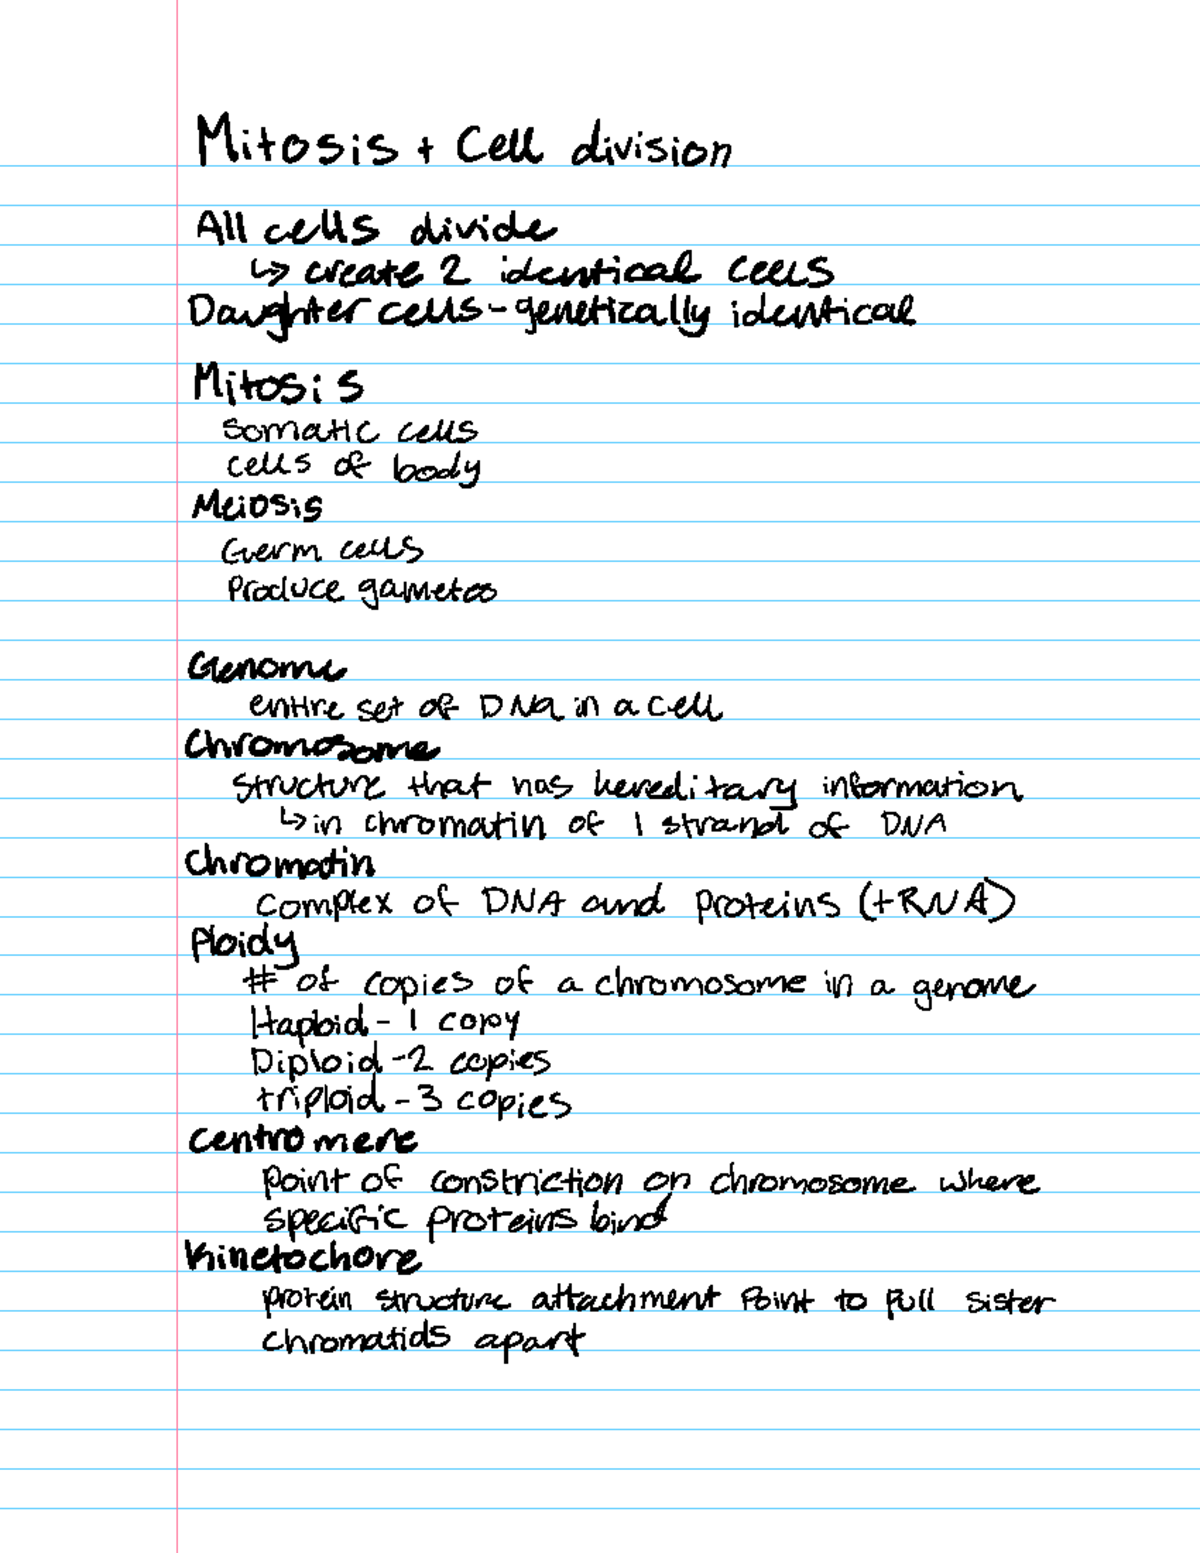 Mitosis + Cell division
All cells divide
↳ create 2 identical cells
Daughter cells - genetically identical
Mitosis
Somatic cells
cells of body
Meiosis
Germ cells
Produce gametes
Genome
entire set of DNA in a cell
Chromosome
structure that has hereditary information
↳ in chromatin of 1 strand of DNA
Chromatin
complex of DNA and proteins (+RNA)
Ploidy
# of copies of a chromosome in a genome
Haploid - 1 copy
Diploid - 2 copies
triploid - 3 copies
Centromere
point of constriction on chromosome where
specific proteins bind
Kinetochore
protein structure attachment point to pull sister
chromatids apart